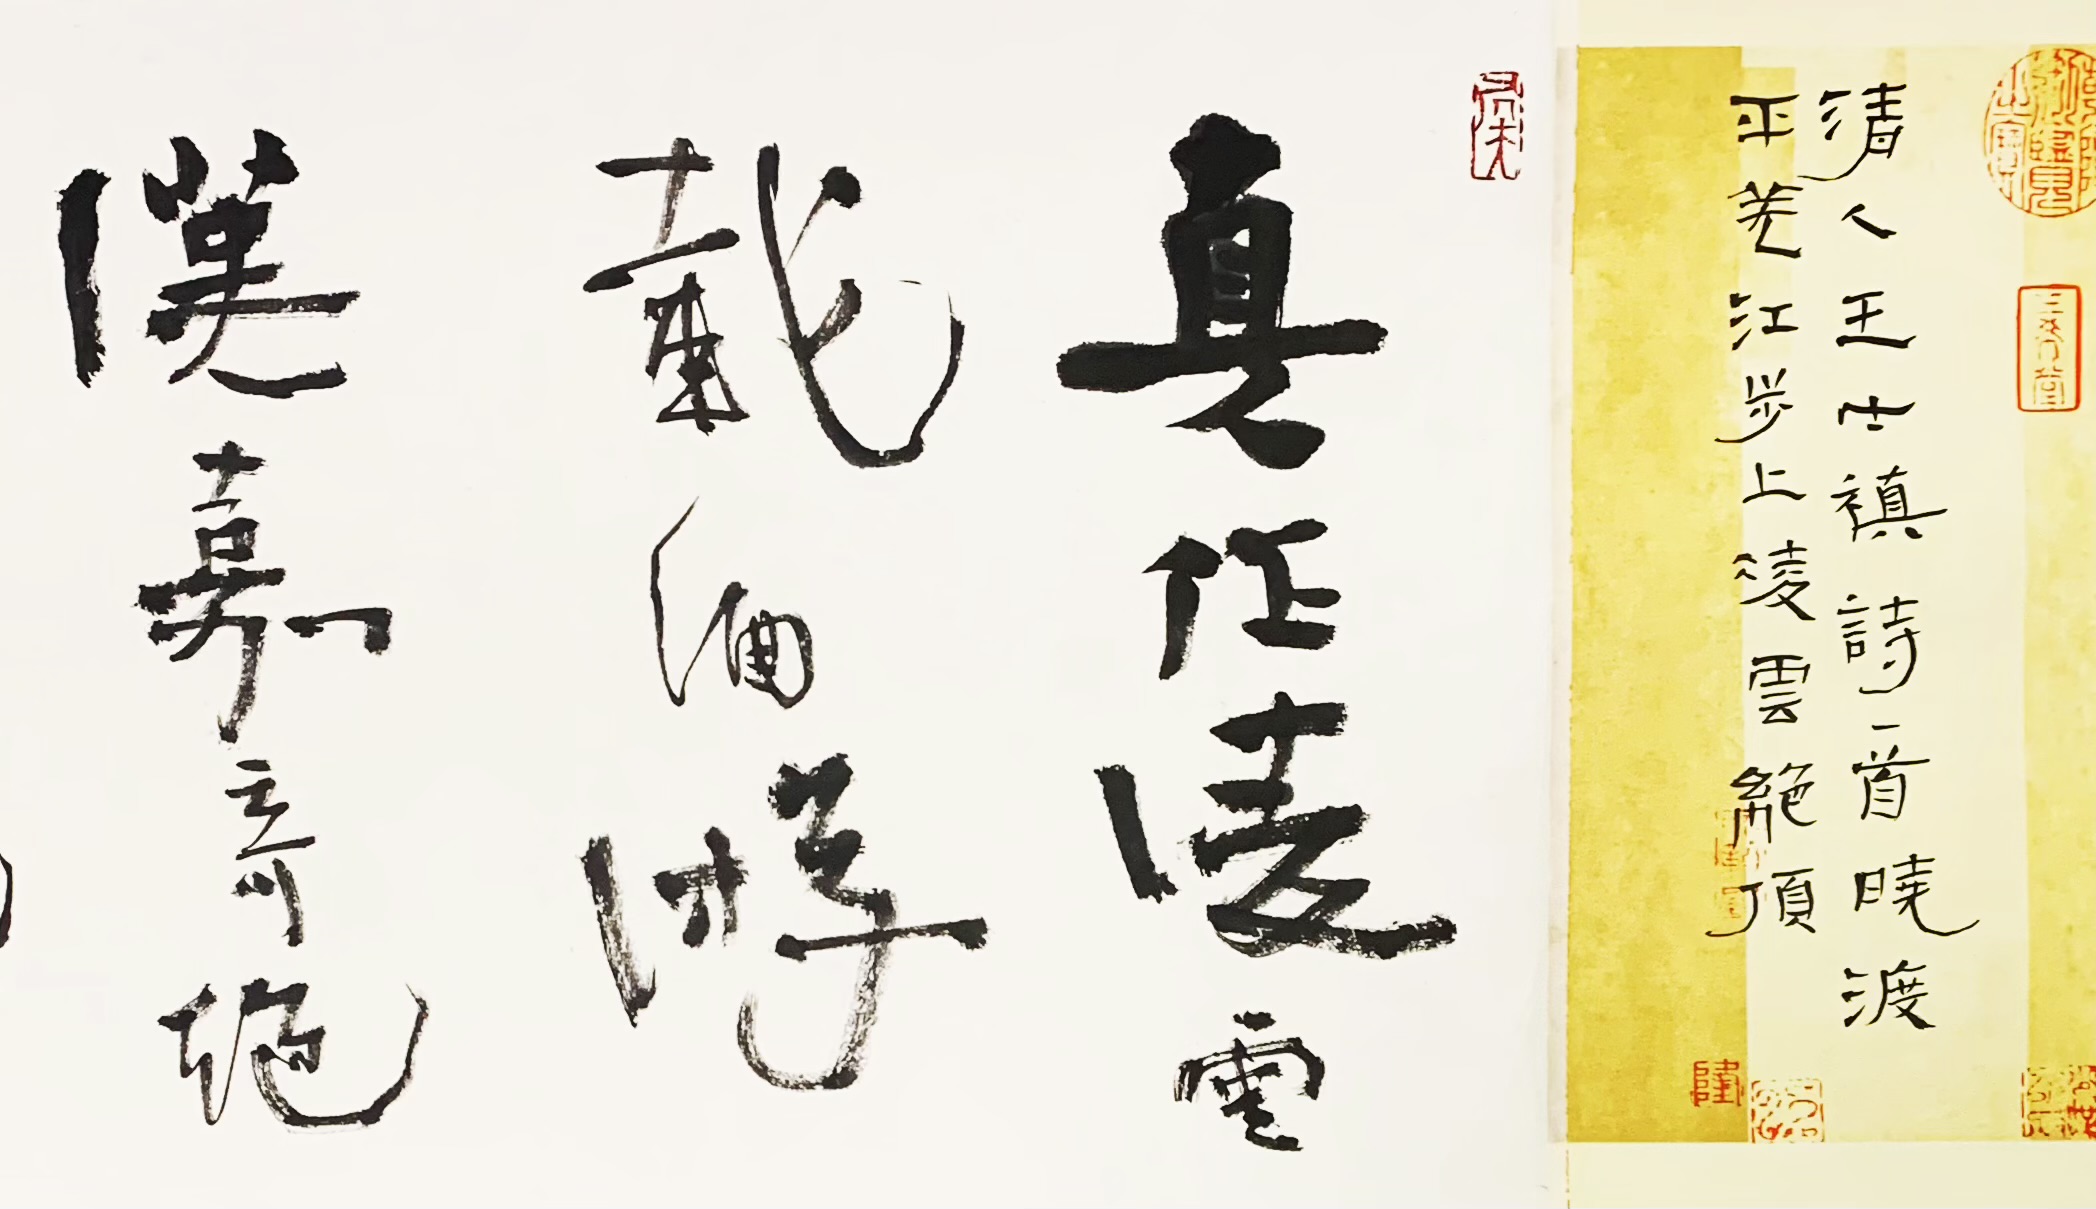 清人王士禛詩一首曉渡
平羌江步上凌雲絶頂
真作凌雲
載酒游
漢嘉奇絶